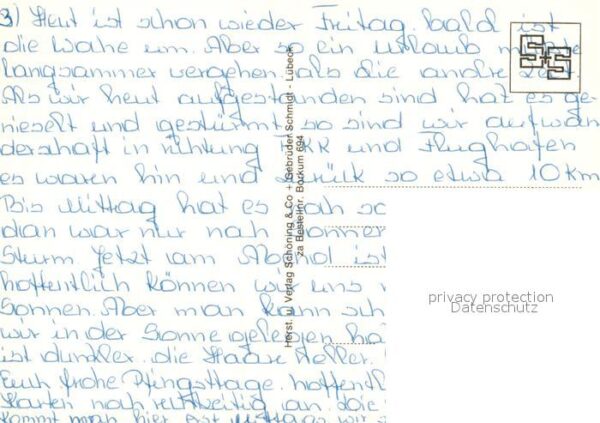 3) Heut ist schon wieder Freitag. bald ist
die Wohe um. Aber so ein Urlaub
langsammer vergehen. als die andre Zeit.
Als wir heut aufgestanden sind hat es ge-
nieselt und gestürmt so sind wir auf wan
derschaft in richtung FKK und Flughafen
es waren hin und zurück so etwa 10 Km
Bis Mittag hat es
dian war nur nah
Sturm Jetzt am Abend ist
hoffentlich können wir uns
Sonnen. Aber man kann
wir in der Sonne gelegen
ist dunkler. die Haare Heller.
Euch frohe Pfingsttage. hoffentl
Karten noch rechtzeitig an. die
kommt man hier erst
Horst. u. Verlag Schöning & Co + Gebrüder Schmidt - Lübeck
za Bestellnr. Borkum 694
privacy protection
Datenschutz